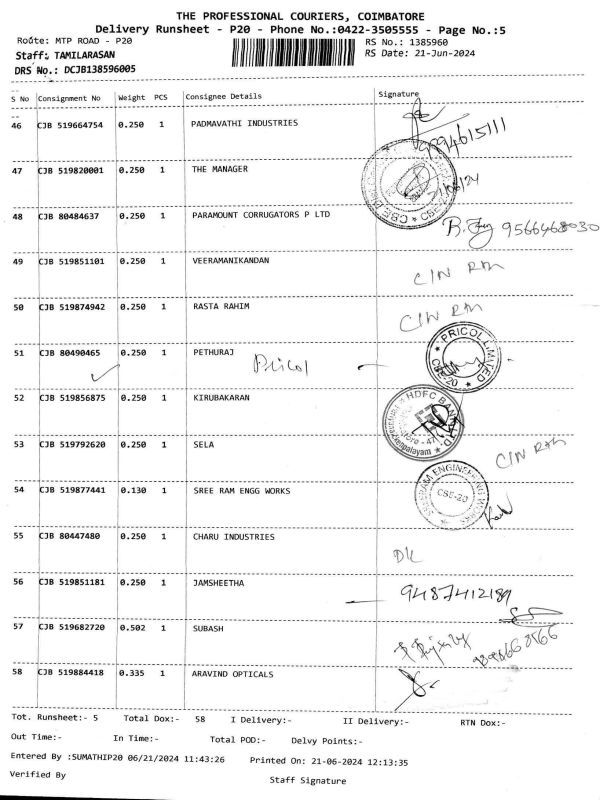 THE PROFESSIONAL COURIERS, COIMBATORE
Delivery Runsheet - P20 - Phone No.:0422-3505555 - Page No.:5
Route: MTP ROAD - P20 RS No.: 1385960
Staff: TAMILARASAN RS Date: 21-Jun-2024
DRS No.: DCJB138596005
S No Consignment No Weight PCS Consignee Details Signature
46 CJB 519664754 0.250 1 PADMAVATHI INDUSTRIES
47 CJB 519820001 0.250 1 THE MANAGER
48 CJB 80484637 0.250 1 PARAMOUNT CORRUGATORS P LTD
9566468030
49 CJB 519851101 0.250 1 VEERAMANIKANDAN
50 CJB 519874942 0.250 1 RASTA RAHIM
51 CJB 80490465 0.250 1 PETHURAJ Pricol
PRICOL LIMITED
CBE-20
52 CJB 519856875 0.250 1 KIRUBAKARAN
HDFC BANK
53 CJB 519792620 0.250 1 SELA
54 CJB 519877441 0.130 1 SREE RAM ENGG WORKS
ENGINEERING WORKS
CBE-20
55 CJB 80447480 0.250 1 CHARU INDUSTRIES
DK
56 CJB 519851181 0.250 1 JAMSHEETHA
57 CJB 519682720 0.502 1 SUBASH
58 CJB 519884418 0.335 1 ARAVIND OPTICALS
Tot. Runsheet:- 5 Total Dox:- 58 I Delivery:- II Delivery:- RTN Dox:-
Out Time:- In Time:- Total POD:- Delvy Points:-
Entered By :SUMATHIP20 06/21/2024 11:43:26 Printed On: 21-06-2024 12:13:35
Verified By Staff Signature